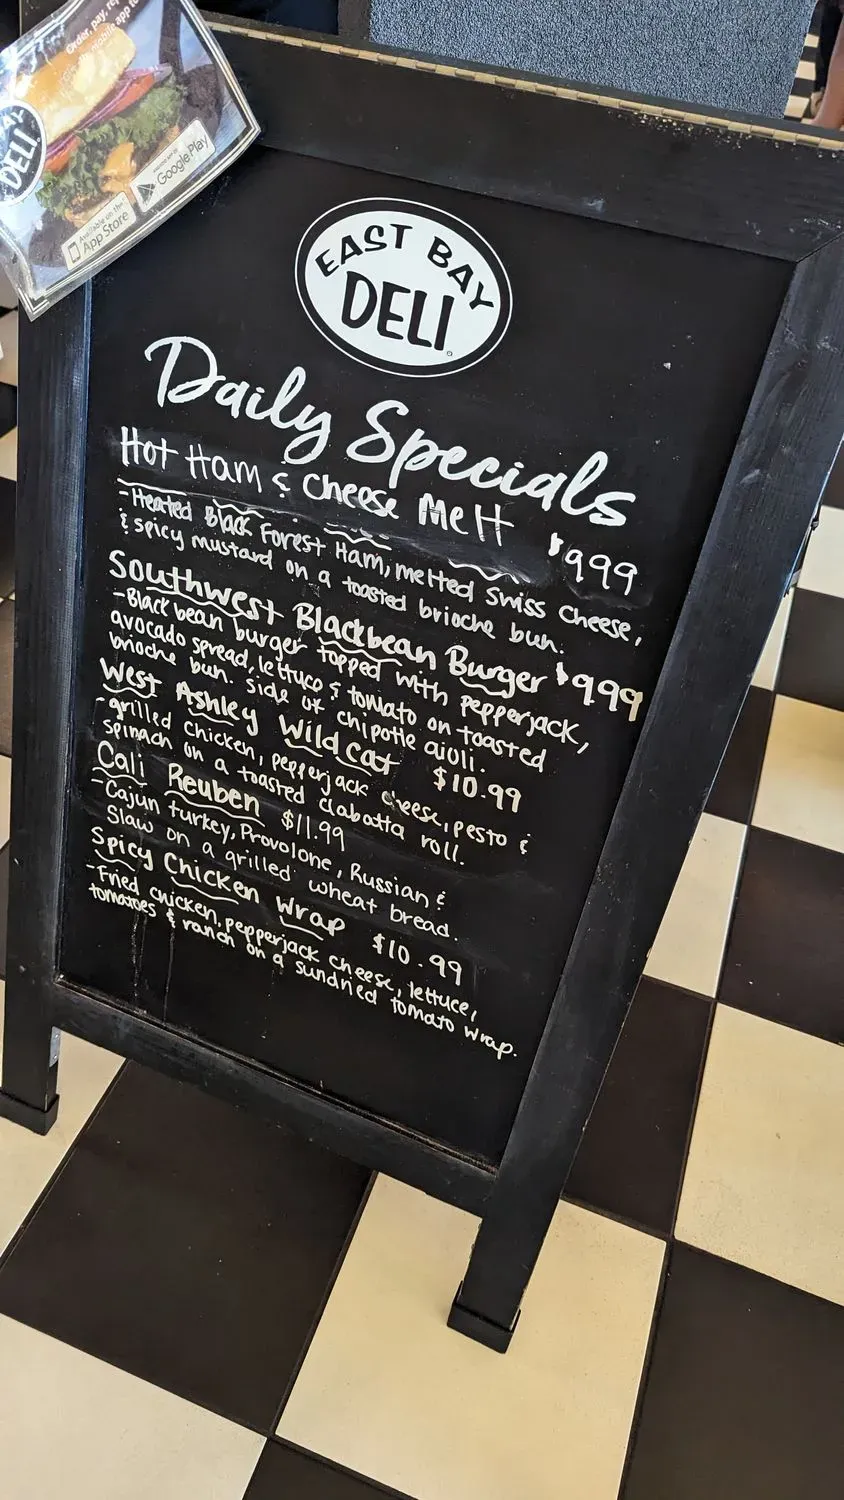 Order, pay, re
mobile app to
BAY
DELI
Available on the
App Store
Google Play
EAST BAY
DELI
Daily Specials
Hot Ham & Cheese Melt $9.99
-Heated Black Forest Ham, melted Swiss Cheese,
& spicy mustard on a toasted brioche bun.
Southwest Blackbean Burger $9.99
-Black bean burger topped with pepperjack,
avocado spread, lettuce & tomato on toasted
brioche bun. side of chipotle aioli.
West Ashley Wildcat $10.99
-grilled chicken, pepperjack cheese, pesto &
spinach on a toasted ciabatta roll.
Cali Reuben $11.99
-Cajun turkey, Provolone, Russian &
Slaw on a grilled wheat bread.
Spicy Chicken Wrap $10.99
-Fried chicken, pepperjack cheese, lettuce,
tomatoes & ranch on a sundried tomato wrap.